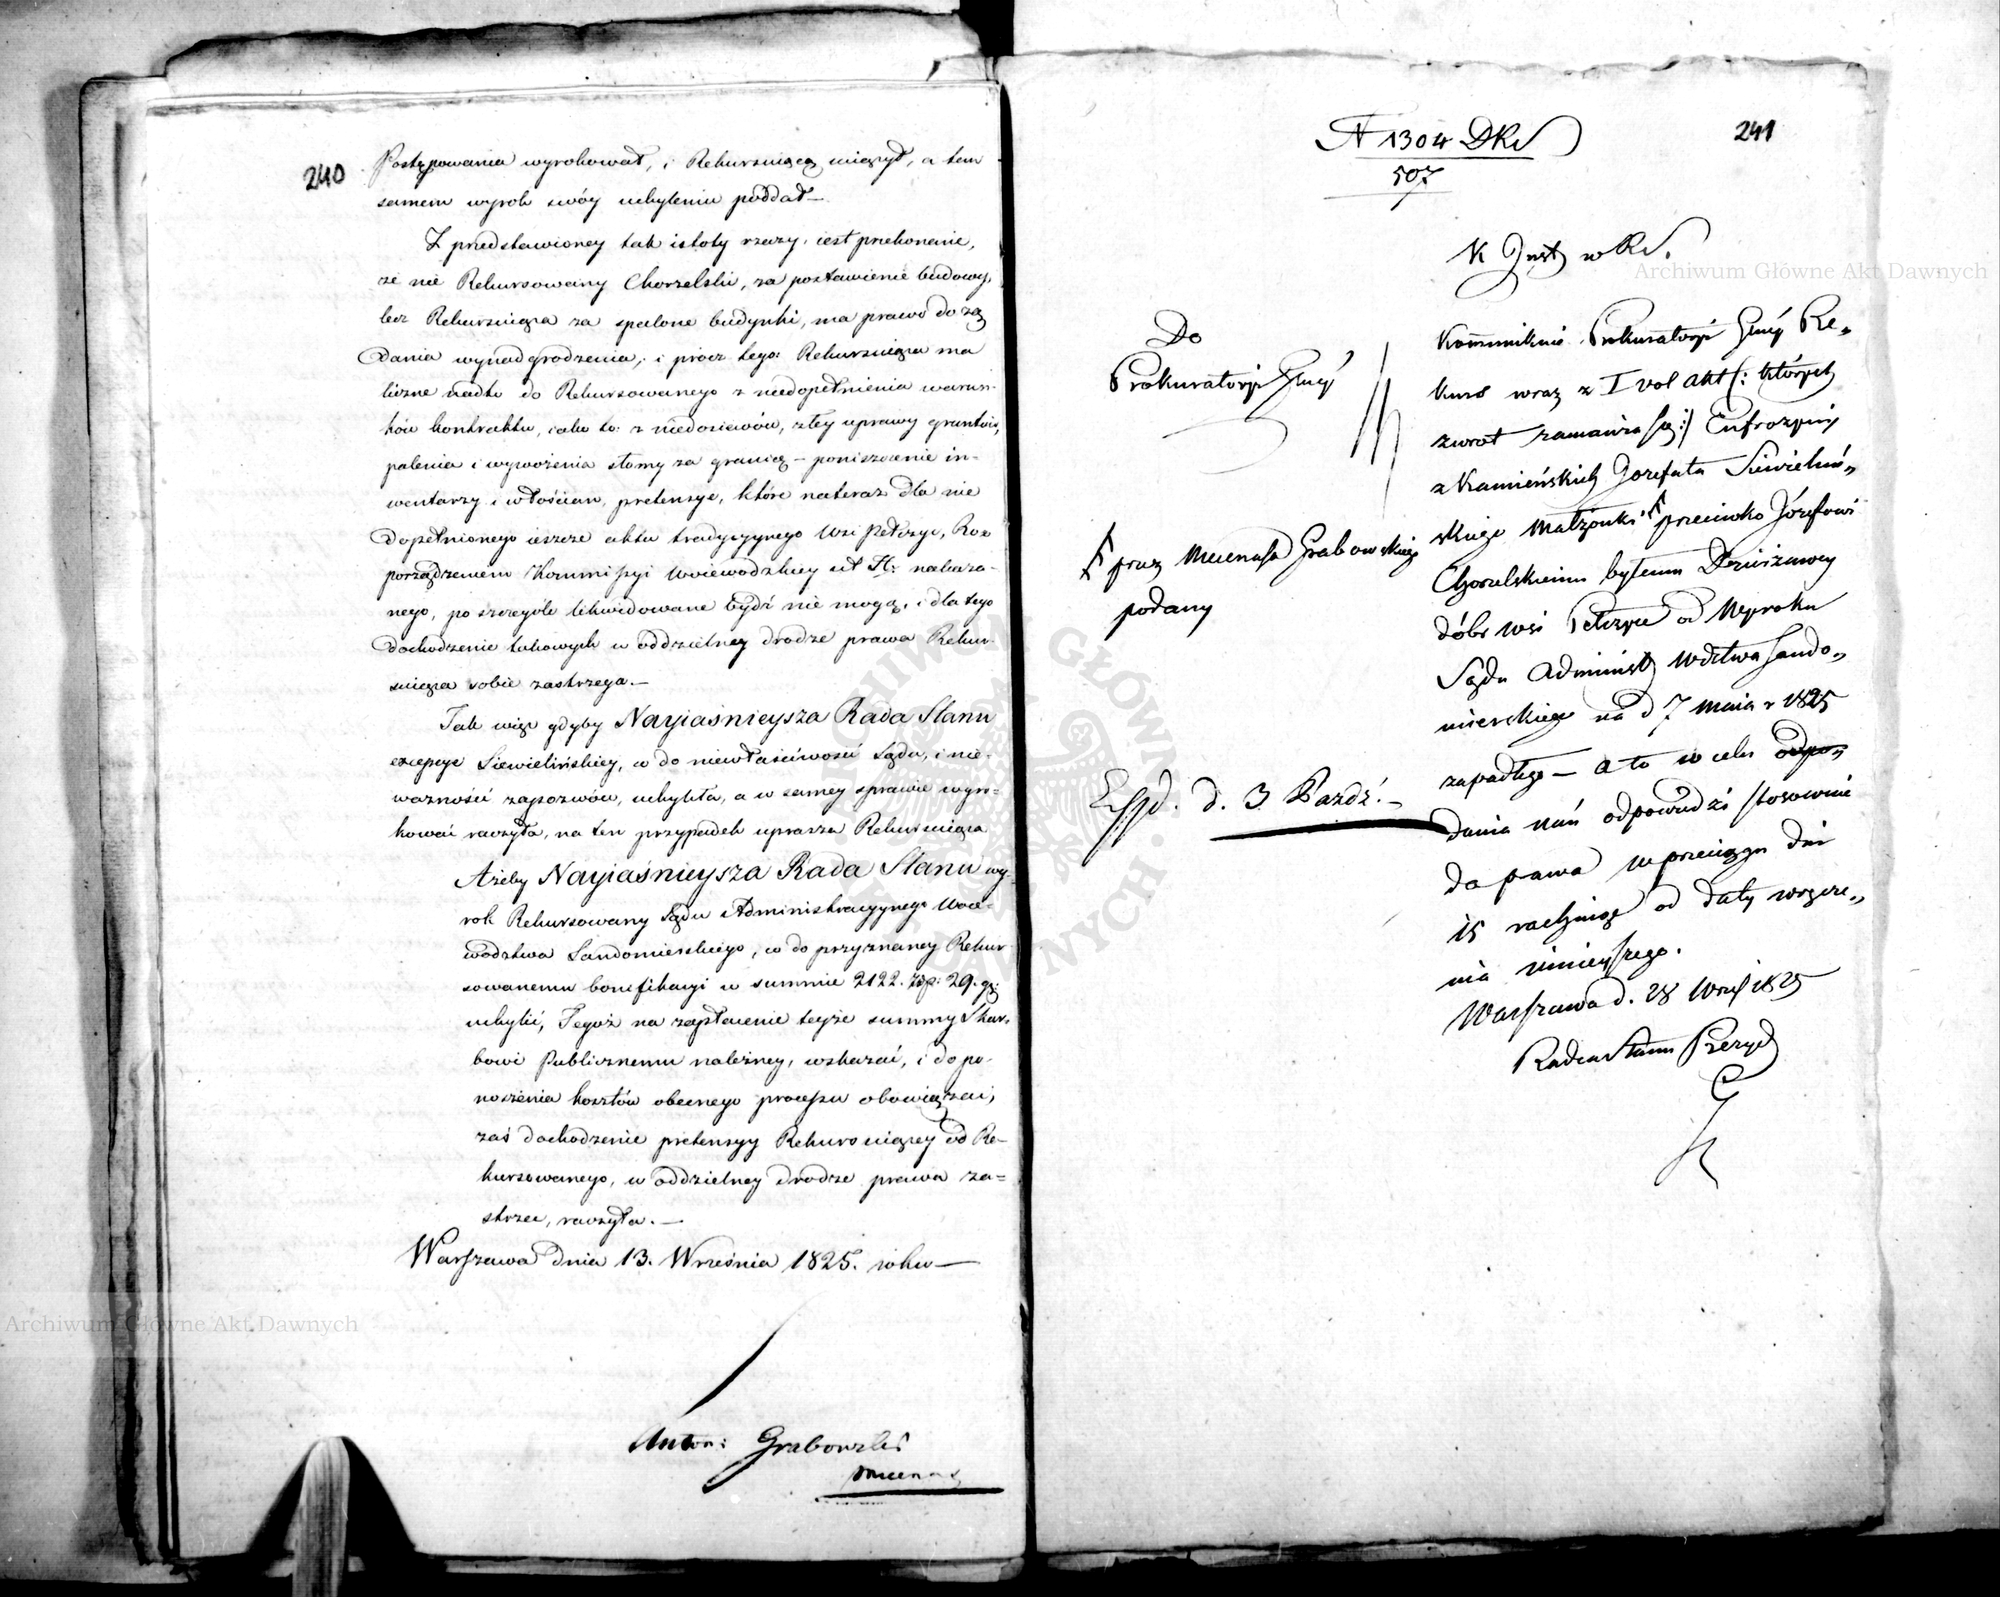 240
Postępowania wyrokował, i Rekursuiącą uciążył, a tem
samem wyrok swóy uchyleniu poddał —
Z przedstawioney tak istoty rzeczy, iest przekonanie,
że nie Rekursowany Chorzelski, za postawienie budowy,
lecz Rekursuiąca za spalone budynki, ma prawo do żą
dania wynadgrodzenia, i prócz tego: Rekursuiąca ma
liczne nadto do Rekursowanego z niedopełnienia warun-
ków kontraktu, iako to: z niedosiewów, złey uprawy gruntów,
palenia i wywożenia słomy za granicę — poniszczenie in-
wentarzy i włościan, pretensye, które nateraz dla nie
dopełnionego ieszcze aktu tradycyynego Wsi Pełczyc, Roz
porządzeniem Kommissyi Woiewodzkiey nakaza-
nego, po szczególe likwidowane bydź nie mogą, i dla tego
dochodzenie takowych w oddzielney drodze prawa Rekur-
suiąca sobie zastrzega. —
Tak więc gdyby Nayiaśnieysza Rada Stanu
excepcye Siewielińskiey, co do niewłaściwości Sądu, i nie-
ważności zapozwów, uchyliła, a w samey sprawie wyro-
kować raczyła, na ten przypadek uprasza Rekursuiąca
Ażeby Nayiaśnieysza Rada Stanu wy-
rok Rekursowany Sądu Administracyynego Woie-
wództwa Sandomierskiego, co do przyznaney Rekur-
sowanemu bonifikacyi w summie 2122. złp: 29. gr:
uchylić, Tegoż na zapłacenie teyże summy Skar-
bowi Publicznemu należney, wskazać, i do po-
noszenia kosztów obecnego processu obowiązać,
zaś dochodzenie pretensyy Rekursuiącey od Re-
kursowanego, w oddzielney drodze prawa za-
strzec, raczyła. —
Warszawa dnia 13. Września 1825. roku —
Antoni Grabowski
Mecenas
241
N 1304 DKS
507
K Just w RS.
Do
Prokuratoryi Gnéy
Kommunikuie Prokuratoryi Gnéy Re-
kurs wraz z I vol akt (: których
zwrot zamawia się :) Eufrozyny
z Kamieńskich Jozefata Siewieliń-
skiego Małżonki przeciwko Józefowi
Chorzelskiemu byłemu Dzierżawcy
dóbr wsi Pełczyce od Wyroku
Sądu Administ Wdztwa Sando-
mierskiego na d 7 maia r 1825
zapadłego — a to w celu odpo-
dania nań odpowiedzi stosownie
do prawa w przeciągu dni
15 rachuiąc od daty wręcze-
nia ninieyszego.
Warszawa d. 28 Wrześ 1825
Radca Stanu Prezyd
przez Mecenasa Grabowskiego
podany
Exp. d. 3 Paźdź. —
Archiwum Główne Akt Dawnych
Archiwum Główne Akt Dawnych